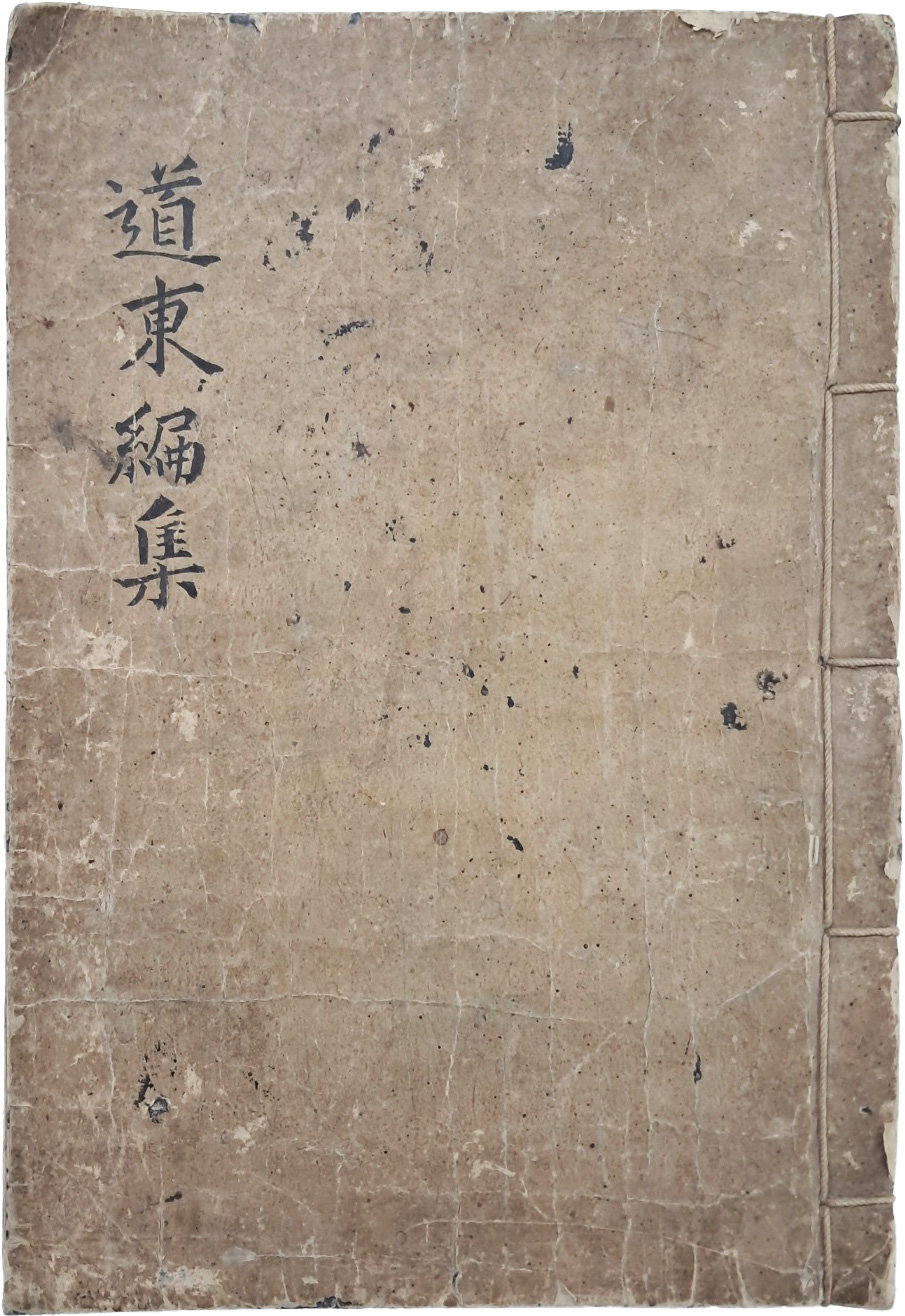 道東編集